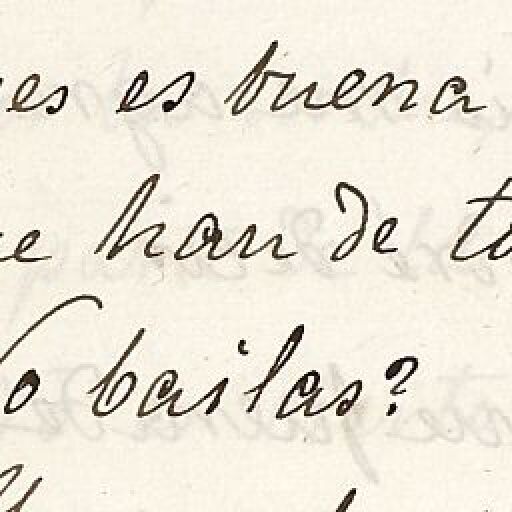 es es buena
han de
bailas?